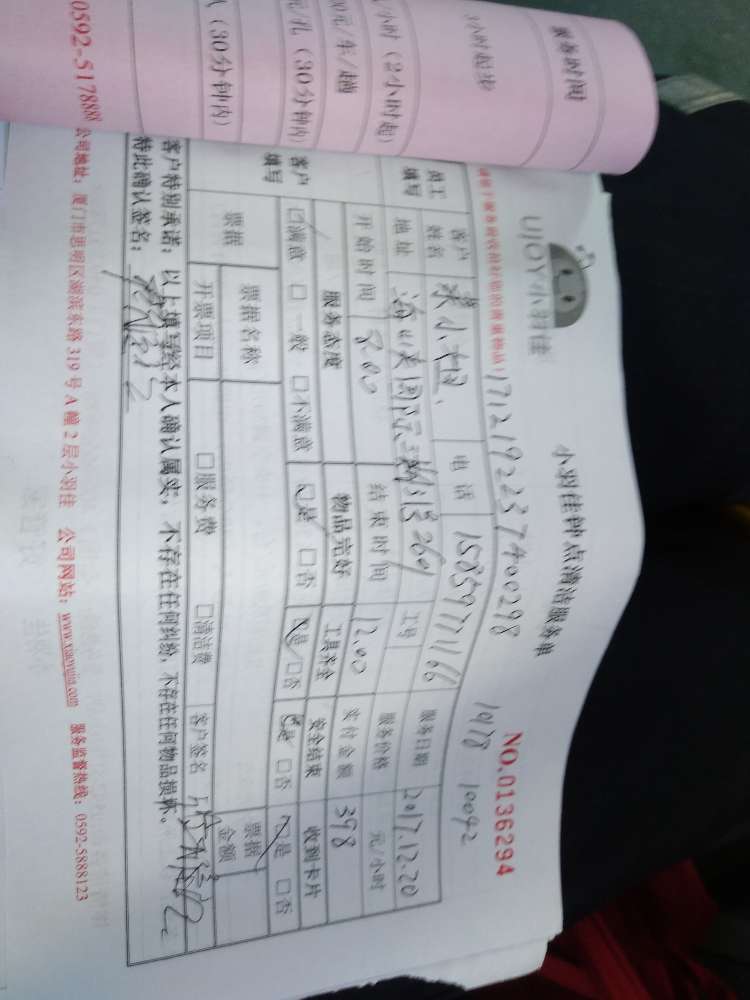 服务时间
3小时起步
小时（2小时起）
0元/车/趟
元/孔（30分钟内）
（30分钟内）
0592-517888
UJOY小羽佳
小羽佳钟点清洁服务单
NO.0136294
1712192237400298
10178 10092
员工填写
客户姓名
小姐
电话
15859771166
服务日期
2017.12.20
地址
工号
服务价格
元/小时
开始时间
8.00
结束时间
12.00
实付金额
398
客户填写
服务态度
物品完好
工具齐全
安全结束
收到卡片
☑满意 □一般 □不满意
☑是 □否
☑是 □否
☑是 □否
☑是 □否
票据
票据名称
票据金额
开票项目
□服务费
□清洁费
客户签名
客户特别承诺：以上填写经本人确认属实，不存在任何纠纷，不存在任何物品损坏。
特此确认签名：
公司地址：厦门市思明区湖滨东路319号A幢2层小羽佳 公司网站：www.xiaoyujia.com 服务监督热线：0592-5888123